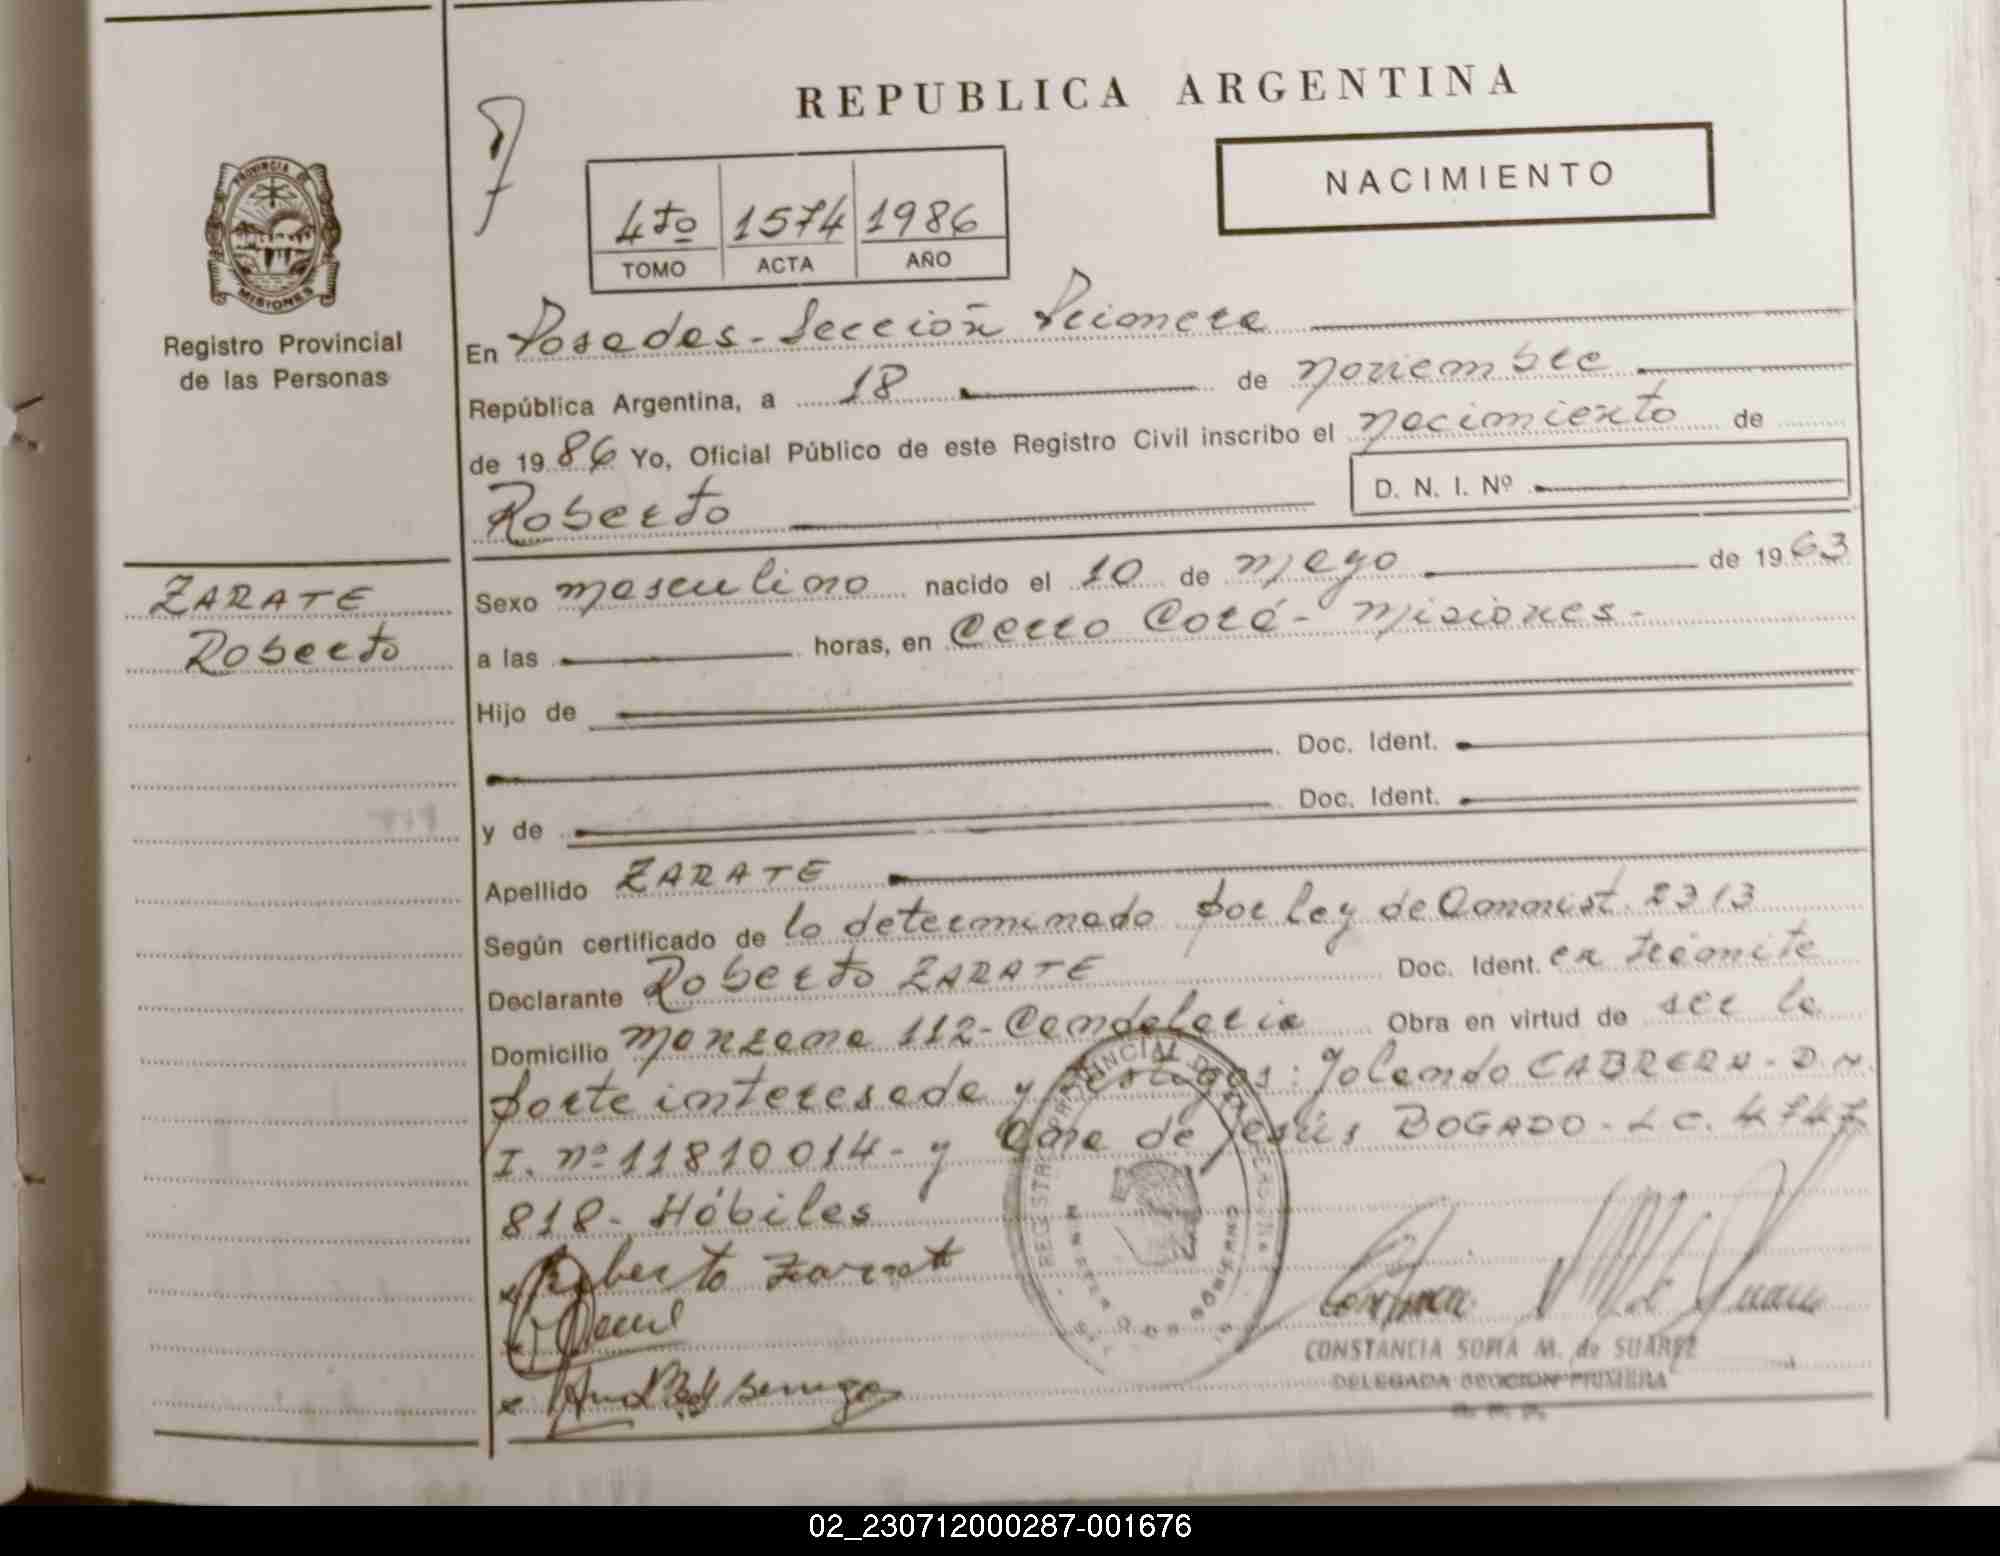 REPUBLICA ARGENTINA
NACIMIENTO
4to 1574 1986
TOMO ACTA AÑO
PROVINCIA DE
MISIONES
Registro Provincial
de las Personas
En Posadas - Sección Primera
República Argentina, a 18 de noviembre
de 1986 Yo, Oficial Público de este Registro Civil inscribo el nacimiento de
Roberto D. N. I. Nº
ZARATE
Roberto
Sexo masculino nacido el 10 de mayo de 1963
a las horas, en Cerro Corá - Misiones -
Hijo de
Doc. Ident.
y de Doc. Ident.
Apellido ZARATE
Según certificado de lo determinado por Ley de Amnist. 2313
Declarante Roberto ZARATE Doc. Ident. en trámite
Domicilio Manzana 112 - Candelaria Obra en virtud de ser la
parte interesada y testigos: Yolanda CABRERA - D.N.
I. nº 11810014 - y Ana de Jesús BOGADO - L C. 4747
818 - Hábiles
x Roberto Zarat
x
x
CONSTANCIA SOFIA M. de SUAREZ
DELEGADA SECCION PRIMERA
02_230712000287-001676